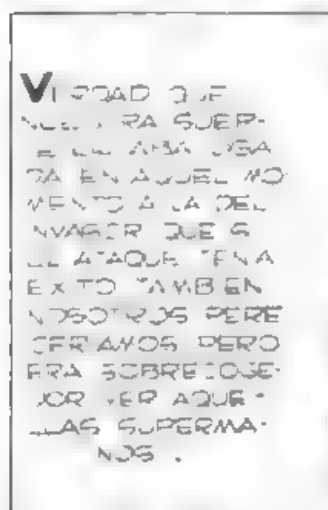 VERDAD QUE
NUESTRA SUER-
TE ESTABA LIGA
DA EN AQUEL MO
MENTO A LA DEL
INVASOR QUE SI
EL ATAQUE TENIA
EXITO TAMBIEN
NOSOTROS PERE
CERIAMOS PERO
ERA SOBRECOGE-
DOR VER AQUE-
LLAS SUPERMA-
NOS.